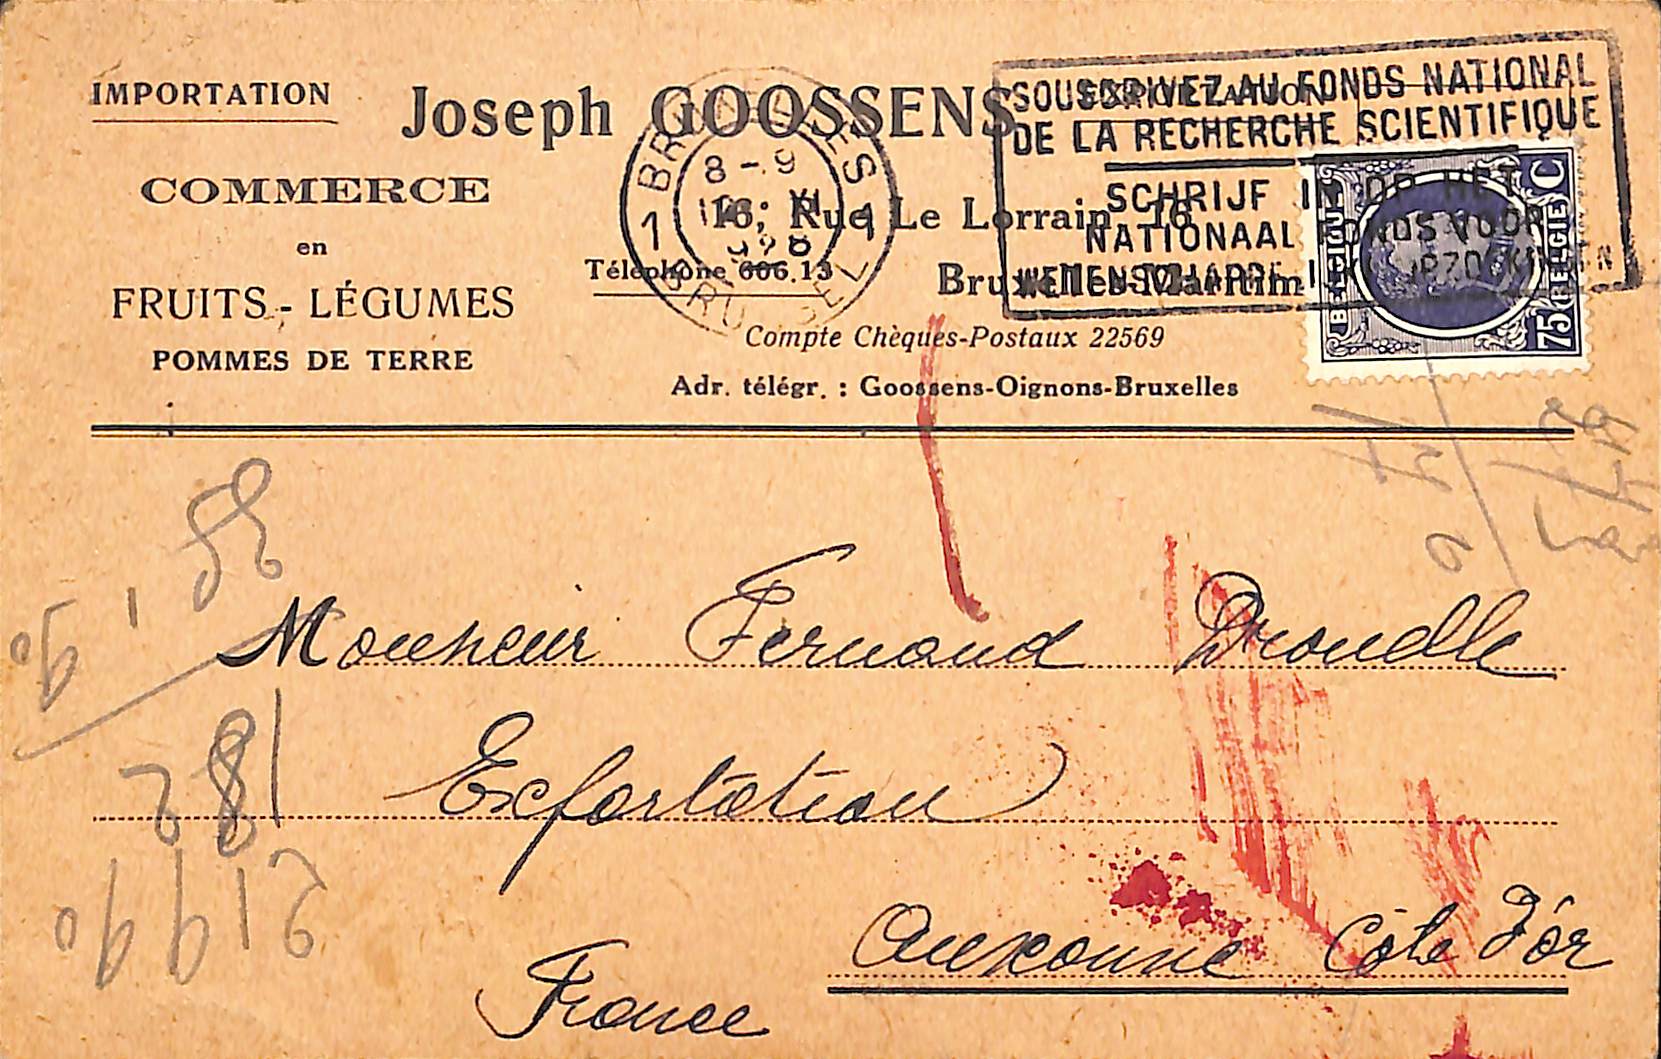 IMPORTATION
Joseph GOOSSENS
EXPORTATION
COMMERCE
en
FRUITS - LÉGUMES
POMMES DE TERRE
16, Rue Le Lorrain, 16
Téléphone 606.13
Bruxelles-Maritime
Compte Chèques-Postaux 22569
Adr. télégr. : Goossens-Oignons-Bruxelles
1 BRUXELLES 1
8 - 9
XI
1928
BRUSSEL
SOUSCRIVEZ AU FONDS NATIONAL
DE LA RECHERCHE SCIENTIFIQUE
SCHRIJF IN OP HET
NATIONAAL FONDS VOOR
WETENSCHAPPELIJK OPZOEKINGEN
BELGIQUE
75 BELGIE C
Monsieur Fernand Drouelle
Exportation
Auxonne Côte d'Or
France
182